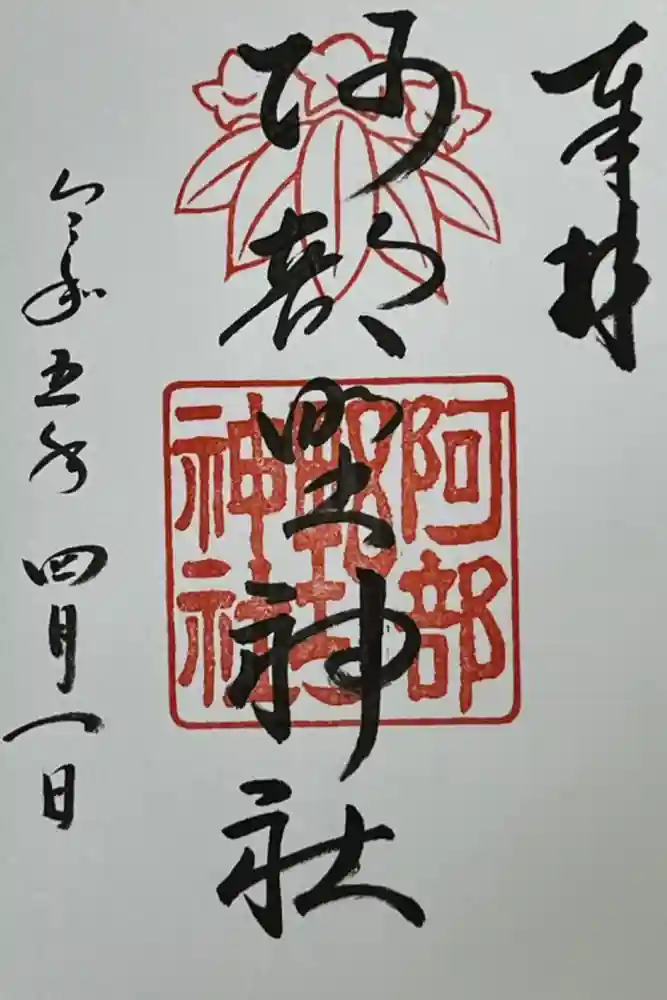 奉拝
阿部野神社
阿部野神社
令和五年四月一日